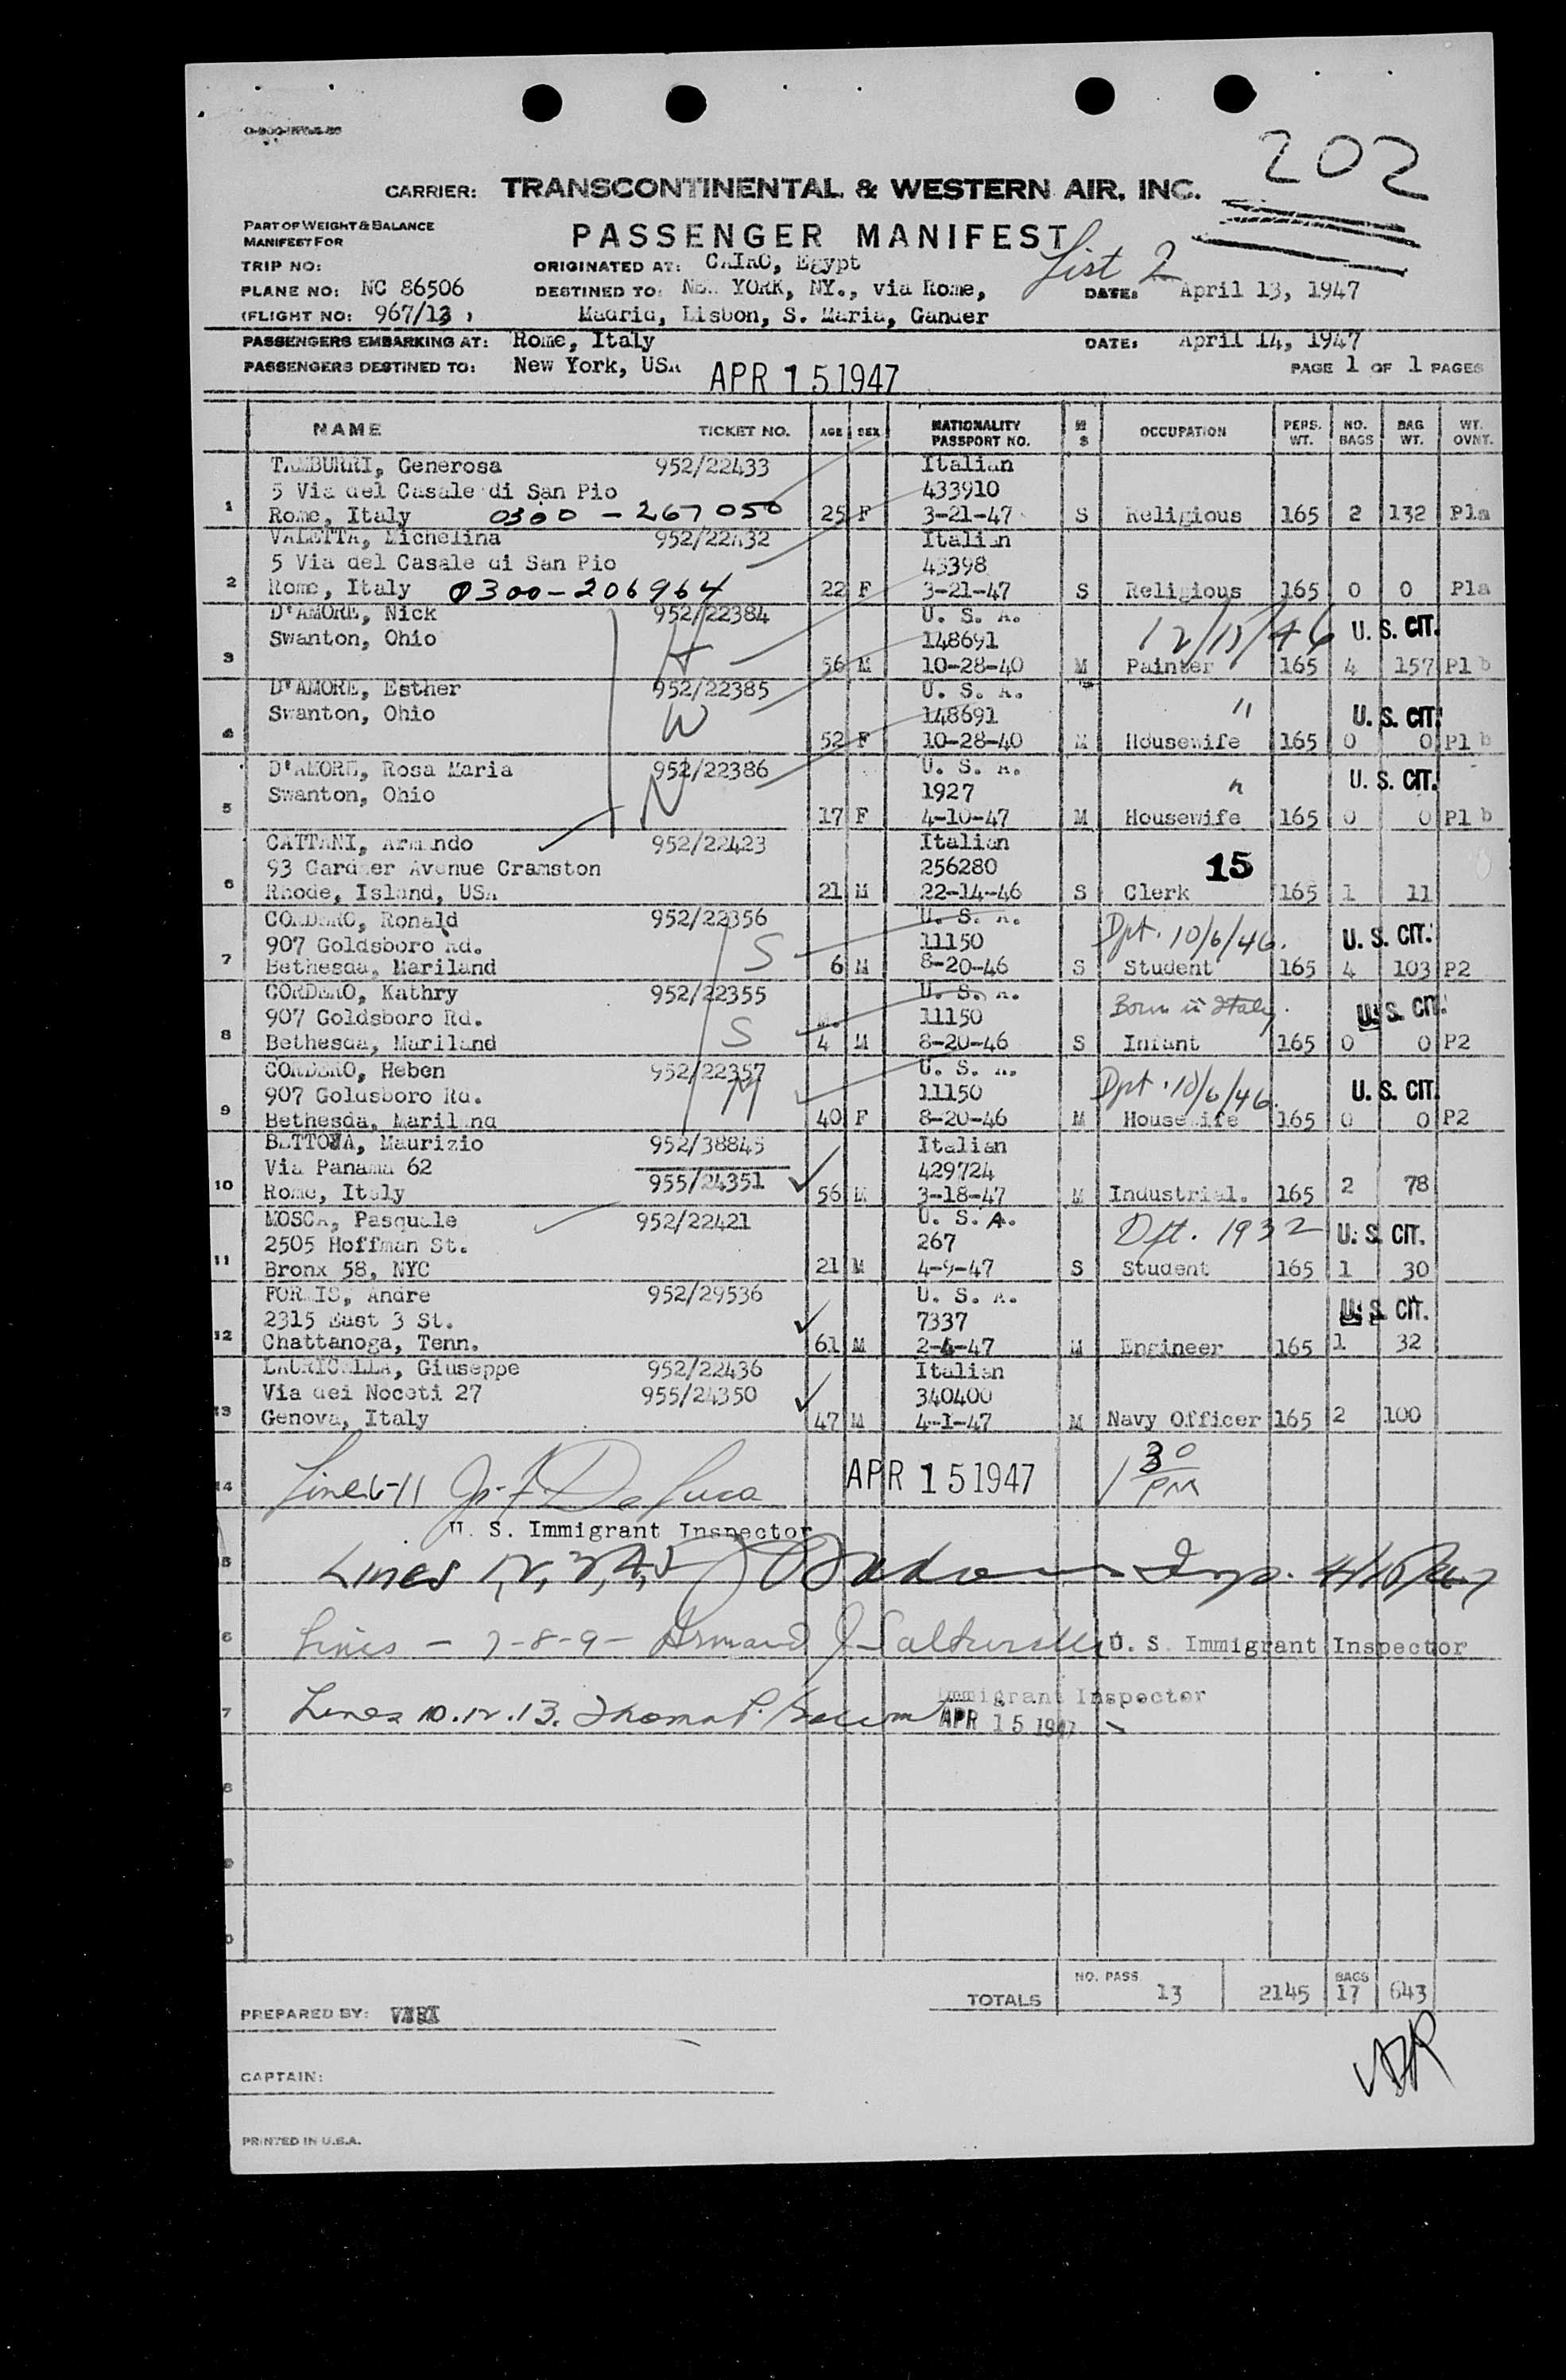 202
CARRIER: TRANSCONTINENTAL & WESTERN AIR, INC.
PART OF WEIGHT & BALANCE
MANIFEST FOR
PASSENGER MANIFEST
List 2
TRIP NO:
ORIGINATED AT: CAIRO, Egypt
PLANE NO: NC 86506
DESTINED TO: NEW YORK, NY., via Rome,
DATE: April 13, 1947
(FLIGHT NO: 967/13 )
Madrid, Lisbon, S. Maria, Gander
PASSENGERS EMBARKING AT: Rome, Italy
DATE: April 14, 1947
PASSENGERS DESTINED TO: New York, USA
APR 15 1947
PAGE 1 OF 1 PAGES
NAME TICKET NO. AGE SEX NATIONALITY PASSPORT NO. M S OCCUPATION PERS. WT. NO. BAGS BAG WT. WT. OVNT.
TAMBURRI, Generosa 952/22433 Italian
5 Via del Casale di San Pio 433910
1 Rome, Italy 0300 - 267050 25 F 3-21-47 S Religious 165 2 132 Pla
VALETTA, Michelina 952/22432 Italian
5 Via del Casale di San Pio 43398
2 Rome, Italy 0300-206964 22 F 3-21-47 S Religious 165 0 0 Pla
D'AMORE, Nick 952/22384 U. S. A.
Swanton, Ohio H 148691 12/15/46 U. S. CIT.
3 56 M 10-28-40 M Painter 165 4 157 Pl b
D'AMORE, Esther 952/22385 U. S. A.
Swanton, Ohio W 148691 " U. S. CIT.
4 52 F 10-28-40 M Housewife 165 0 0 Pl b
D'AMORE, Rosa Maria 952/22386 U. S. A.
Swanton, Ohio N 1927 " U. S. CIT.
5 17 F 4-10-47 M Housewife 165 0 0 Pl b
CATTANI, Armando 952/22423 Italian
93 Gardner Avenue Cramston 256280 15
6 Rhode, Island, USA 21 M 22-14-46 S Clerk 165 1 11
CORDERO, Ronald 952/22356 U. S. A.
907 Goldsboro Rd. S 11150 Dpt. 10/6/46. U. S. CIT.
7 Bethesda, Mariland 6 M 8-20-46 S Student 165 4 103 P2
CORDERO, Kathry 952/22355 U. S. A.
907 Goldsboro Rd. S 11150 Born in Italy. U. S. CIT.
8 Bethesda, Mariland 4 M 8-20-46 S Infant 165 0 0 P2
CORDERO, Heben 952/22357 U. S. A.
907 Goldsboro Rd. M 11150 Dpt. 10/6/46. U. S. CIT.
9 Bethesda, Mariland 40 F 8-20-46 M Housewife 165 0 0 P2
Maurizio 952/38845 Italian
Via Panama 62 429724
10 Rome, Italy 955/24351 56 M 3-18-47 M Industrial. 165 2 78
MOSCA, Pasquale 952/22421 U. S. A.
2505 Hoffman St. 267 Dpt. 1932 U. S. CIT.
11 Bronx 58, NYC 21 M 4-9-47 S Student 165 1 30
Andre 952/29536 U. S. A.
2315 East 3 St. 7337 U. S. CIT.
12 Chattanoga, Tenn. 61 M 2-4-47 M Engineer 165 1 32
LAURICELLA, Giuseppe 952/22436 Italian
Via dei Noceti 27 955/24350 340400
13 Genova, Italy 47 M 4-1-47 M Navy Officer 165 2 100
Line 6-11 De Luca APR 15 1947 1 30 PM
U. S. Immigrant Inspector
Lines 1, 2, 3, 4, 5 Insp. 4/15/47
Lines - 7-8-9- Armand J U. S. Immigrant Inspector
Immigrant Inspector
Lines 10.12.13. Thomas P.
APR 15 1947
TOTALS NO. PASS 13 2145 BAGS 17 643
PREPARED BY:
CAPTAIN:
PRINTED IN U.S.A.